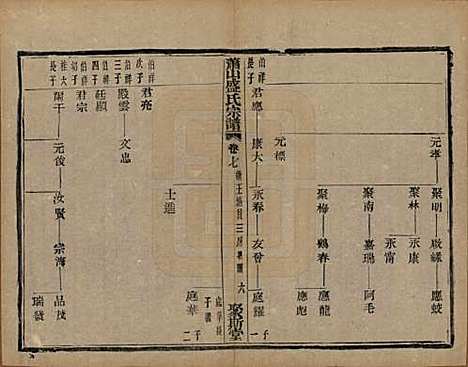 元孝
聚明 啟緣 應蛟
聚林 永康
永甯
聚南 嘉瑞 阿毛
聚梅 鶴春 應龍
應彪
元標
伯祥長子 君應 康大 永春 友發 庭耀 子一
蕭山盛氏宗譜 卷七 六 聚斯堂
士進 庭華 子二
伯祥次子 君堯
三子 殿雲 文忠
四子 廷顯
幼子 君宗
桂大長子 元俊 汝賢 宗海 品茂
瑞發